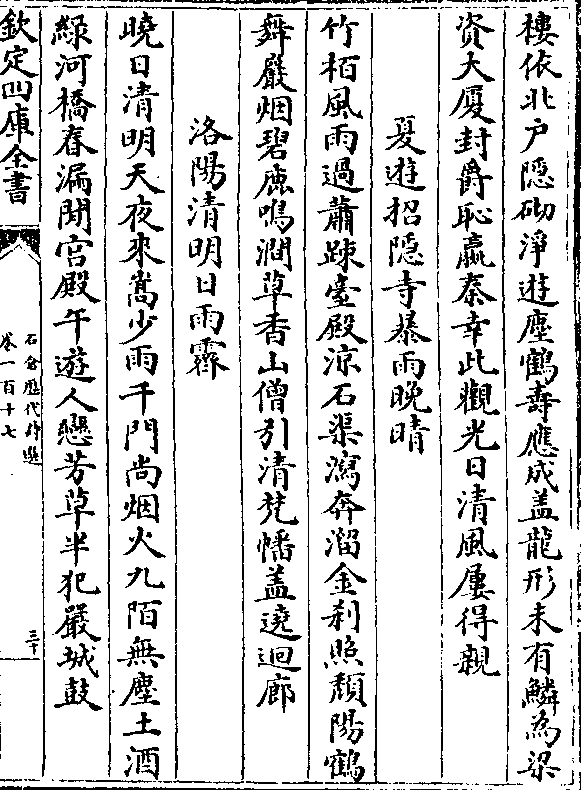 棲依北户隠砌淨逰塵鶴壽應成盖龍形未有鱗為梁
資大厦封爵恥嬴秦幸此觀光日清風屢得親
夏逰招隠寺暴雨晚晴
竹栢風雨過蕭踈臺殿涼石渠瀉奔溜金刹照頽陽鶴
舞巖烟碧鹿鳴澗草香山僧引清梵幡盖遶迴廊
洛陽清明日雨霽
曉日清明天夜來嵩少雨千門尚烟火九陌無塵土酒
緑河橋春漏閒宫殿午遊人戀芳草半犯嚴城鼓
欽定四庫全書
石倉歴代詩選
卷一百十七
三十